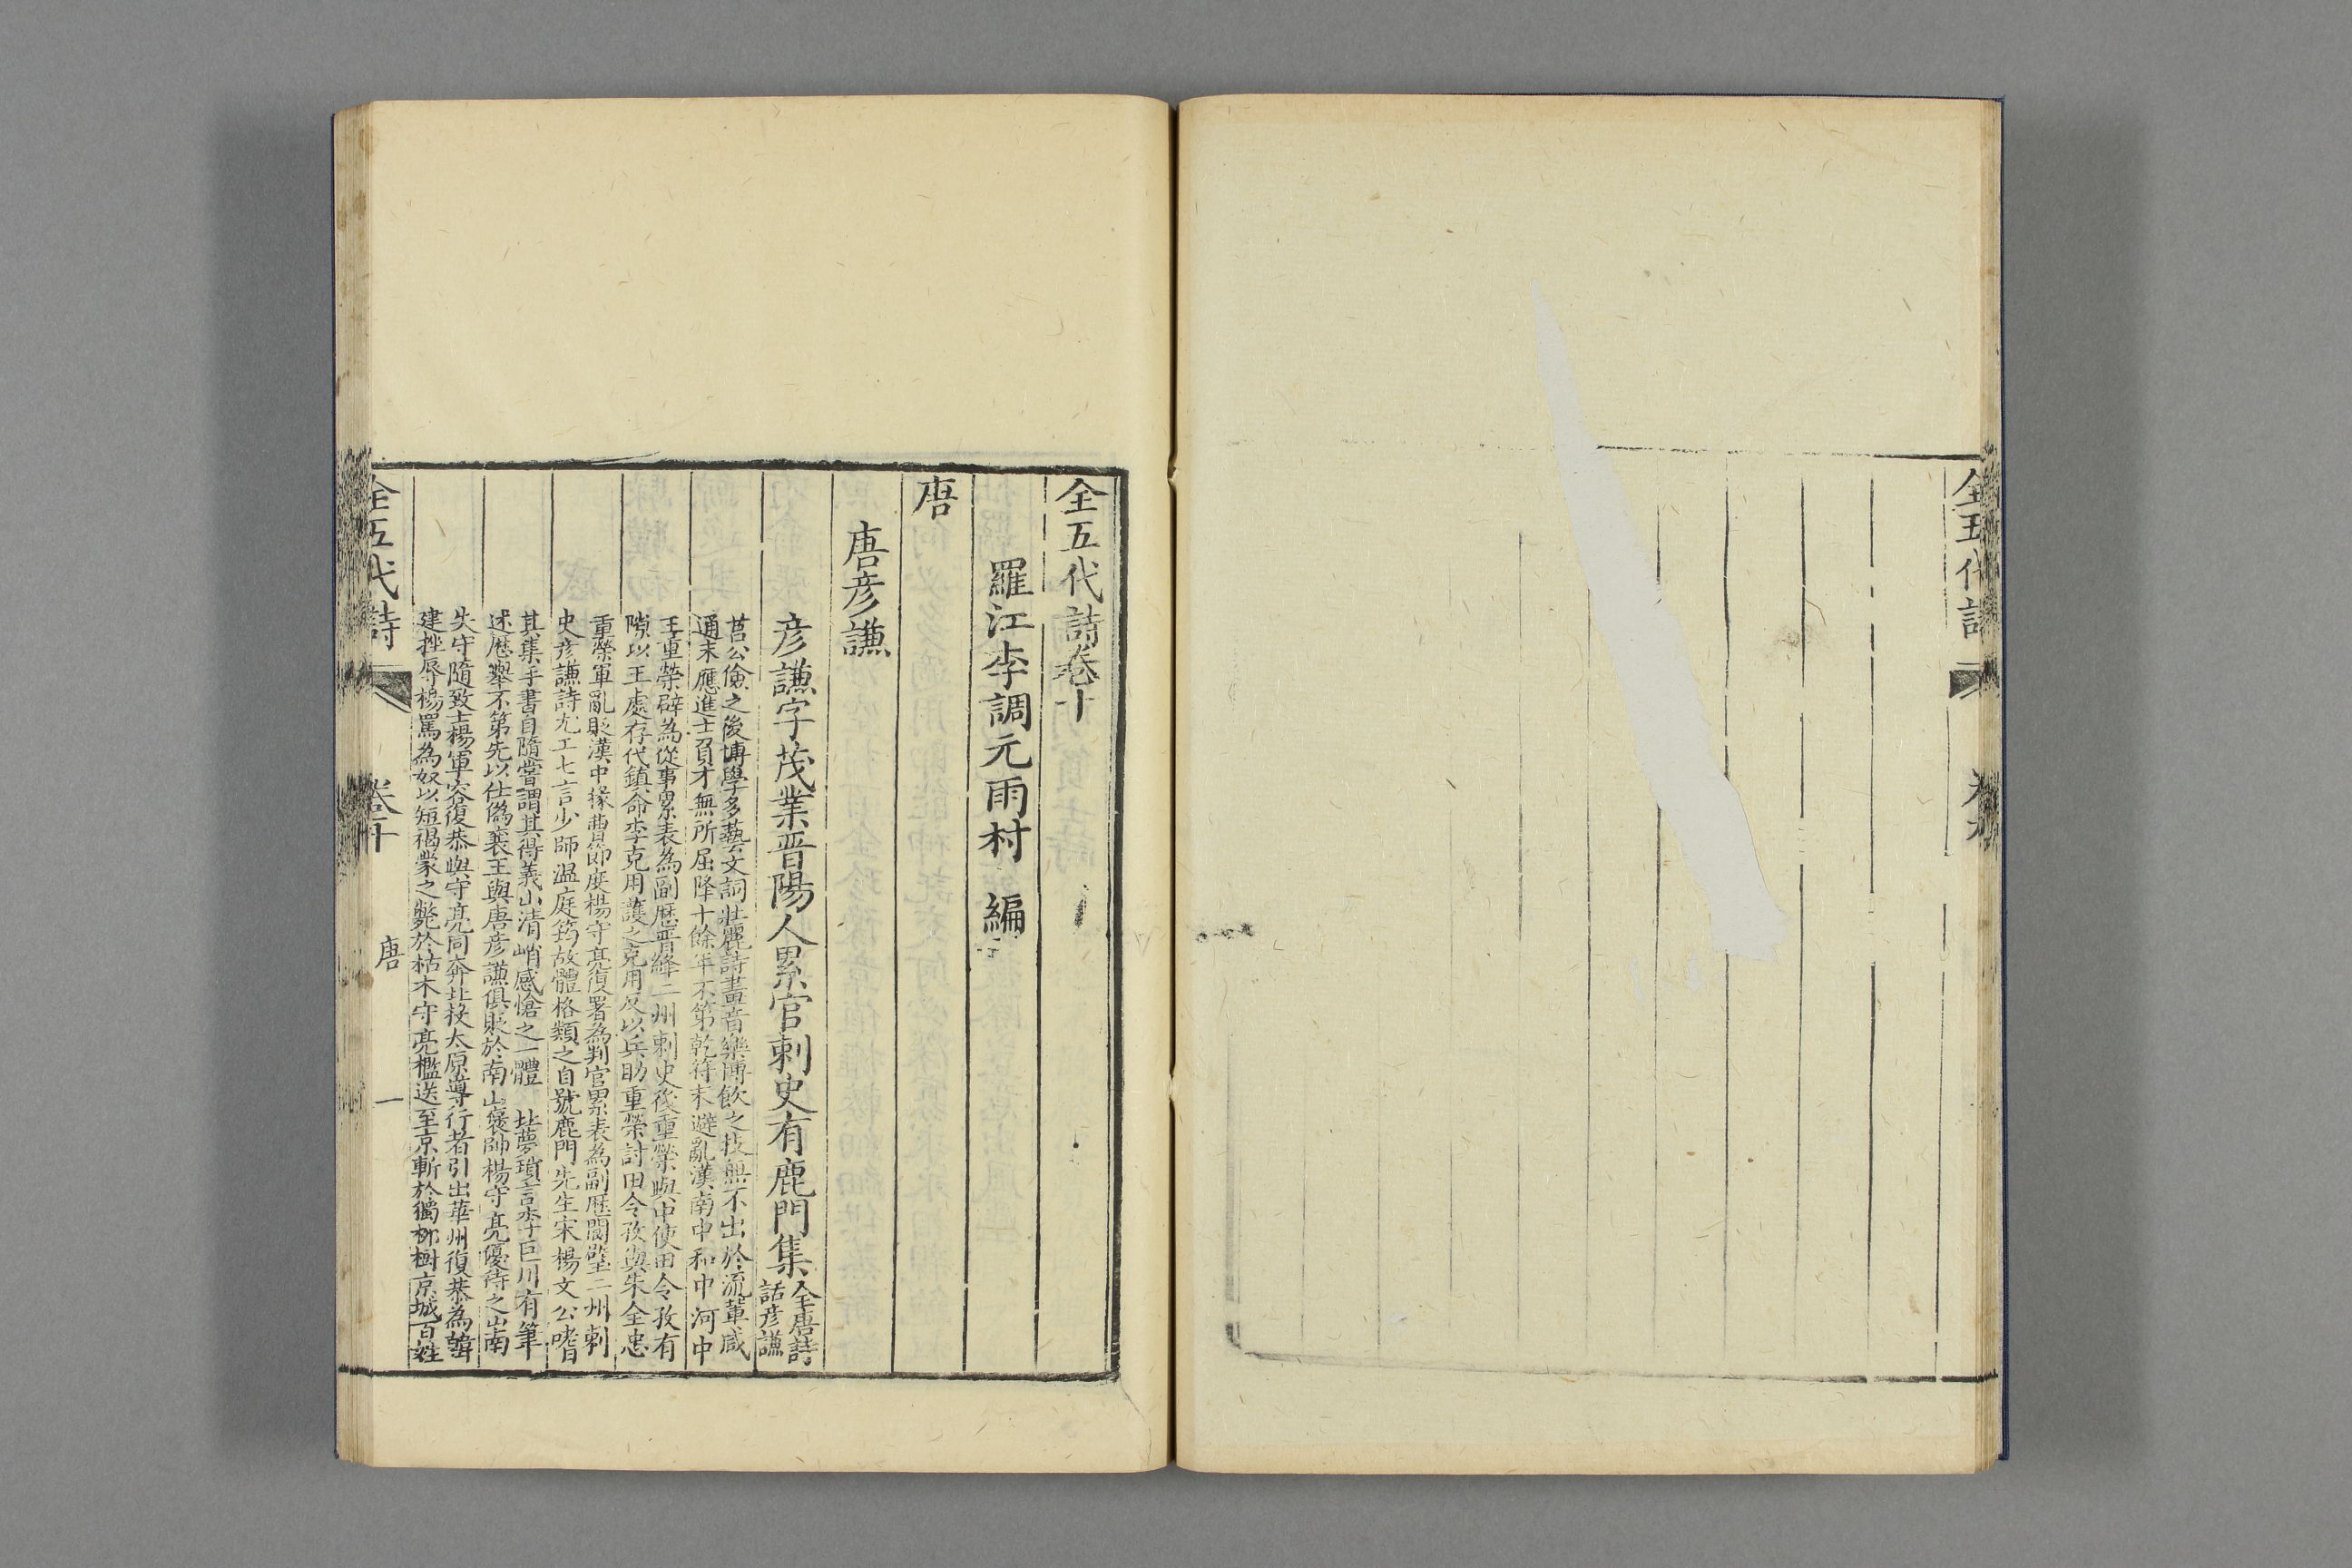 全五代詩
全五代詩卷十
羅江李調元雨村 編
唐
唐彦謙
彦謙字茂業晋陽人累官刺史有鹿門集全唐詩
話彦謙
莒公儉之後博學多藝文詞壯麗詩畫音樂博飲之技無不出於流輩咸
通末應進士負才無所屈降十餘年不第乾符末避亂漢南中和中河中
王重榮辟為從事累表為副歷晋絳二州刺史後重榮與中使田令孜有
隙以王處存代鎮命李克用護之克用反以兵助重榮討田令孜與朱全忠
重榮軍亂貶漢中掾曹節度楊守亮復署為判官累表為副歷閬壁二州刺
史彦謙詩尤工七言少師温庭筠故體格類之自號鹿門先生宋楊文公嗜
其集手書自隨嘗謂其得義山清峭感愴之一體 北夢瑣言李巨川有筆
述歷舉不第先以仕僞襄王與唐彦謙俱貶於南山褒帥楊守亮優待之山南
失守隨致士楊軍容復恭與守亮同奔北投太原導行者引出華州復恭為韓
建挫辱楊罵為奴以短褐蒙之斃於枯木守亮檻送至京斬於獨柳樹京城百姓
全五代詩 卷十 唐 一